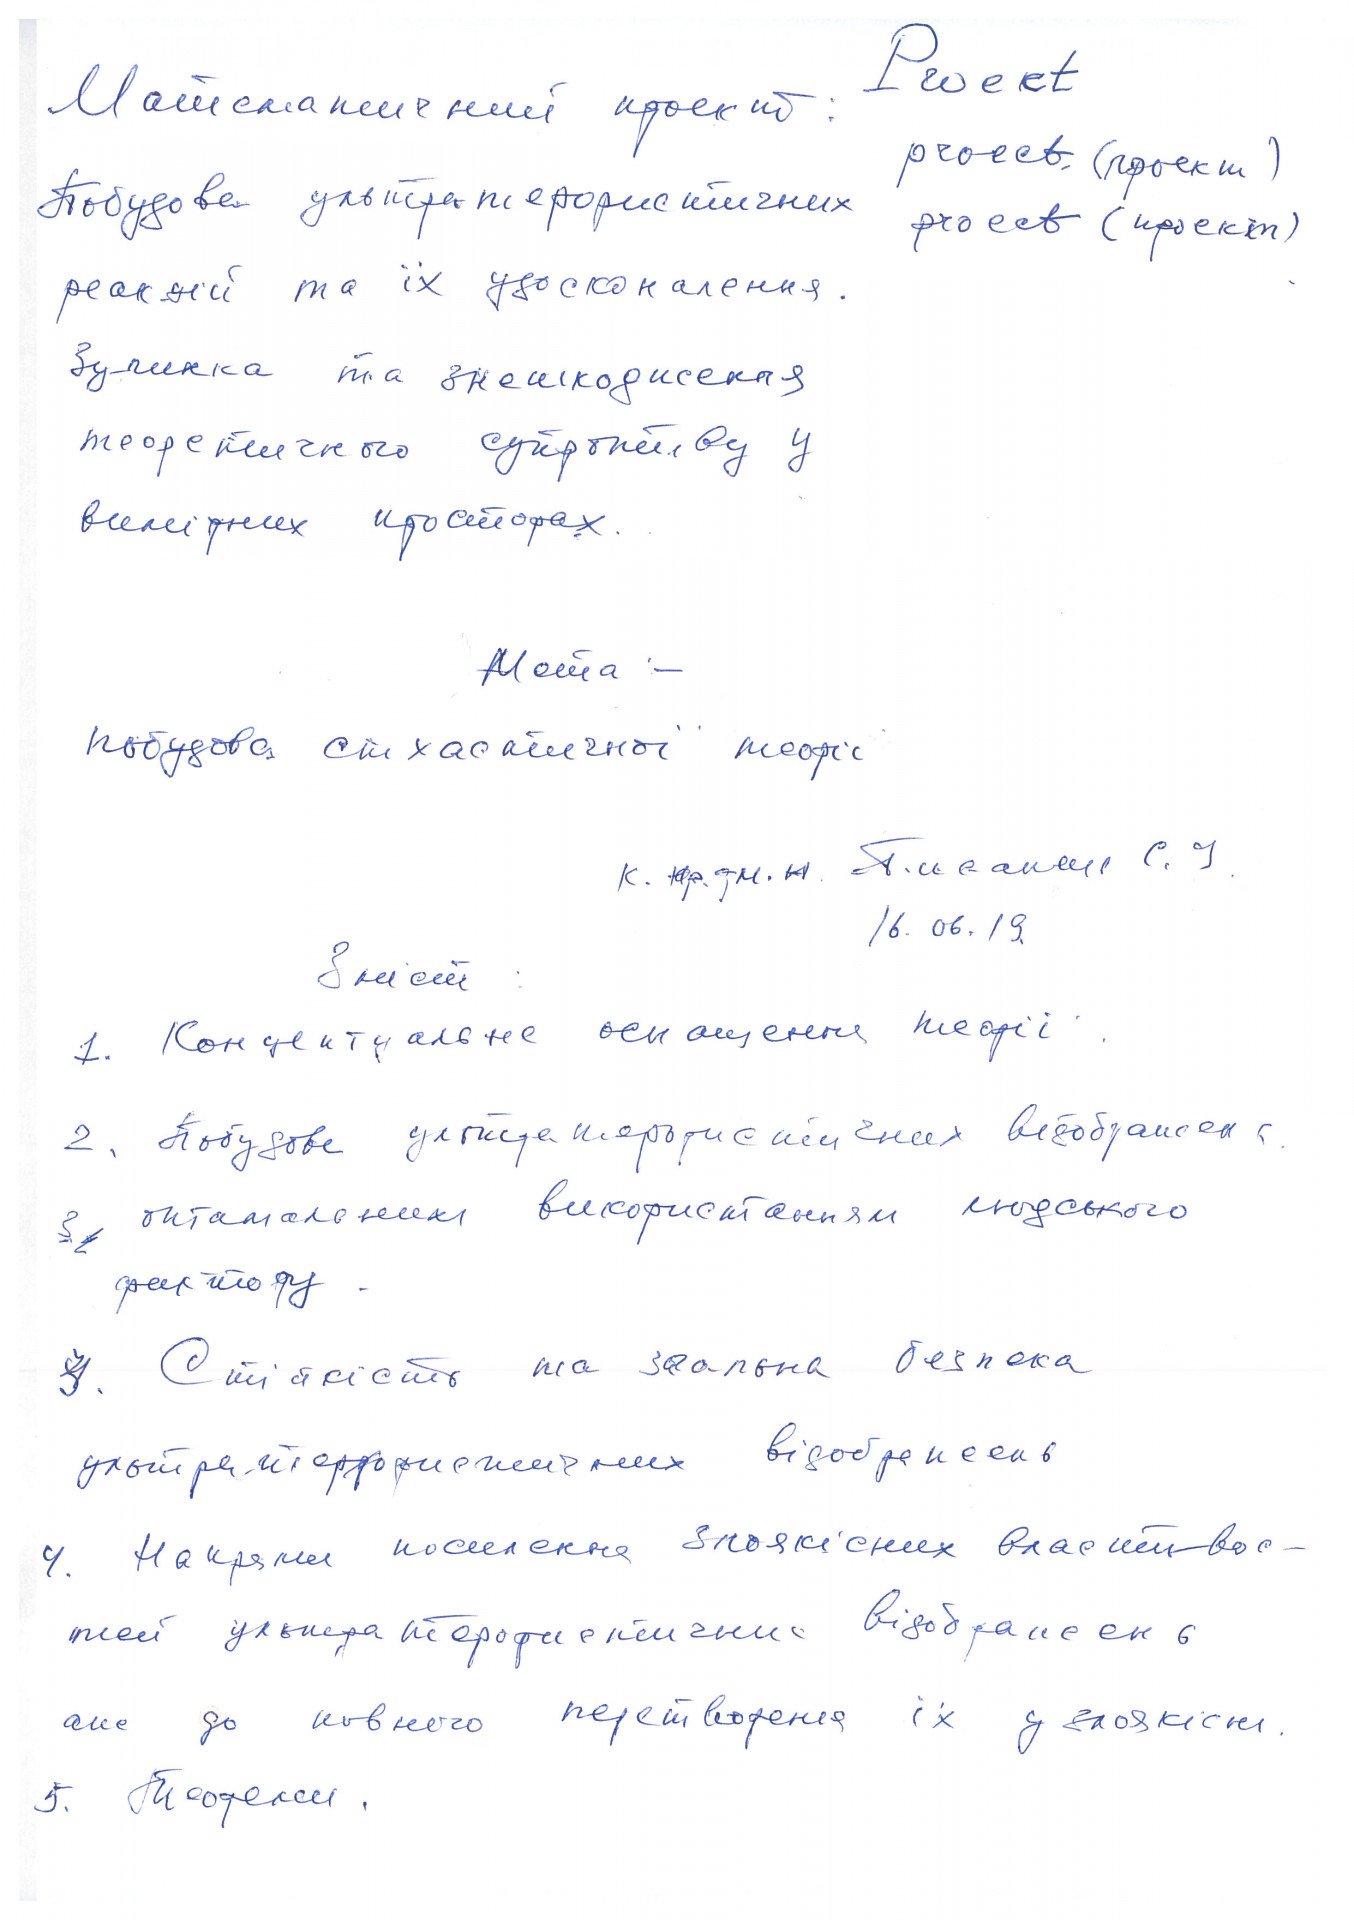 Математичний проект:
Proekt
proect (проект)
Побудова ультратерористичних
proect (проект)
реакцій та їх удосконалення.
Зупинка та знешкодження
теоретичного супротиву у
вимірних просторах.
Мета :-
побудова стхастичної теорії
С. І.
16.06.19
Зміст :
1. Концептуальне оснащення теорії.
2. Побудова ультратерористичних відображень
3. оптимальним використанням людського
фактору.
3. Стійкість та загальна безпека
ультратерористичних відображень
4. Напрями посилення злоякісних властивос-
тей ультратерористичних відображень
аж до повного перетворення їх у злоякісні.
5. Теореми.